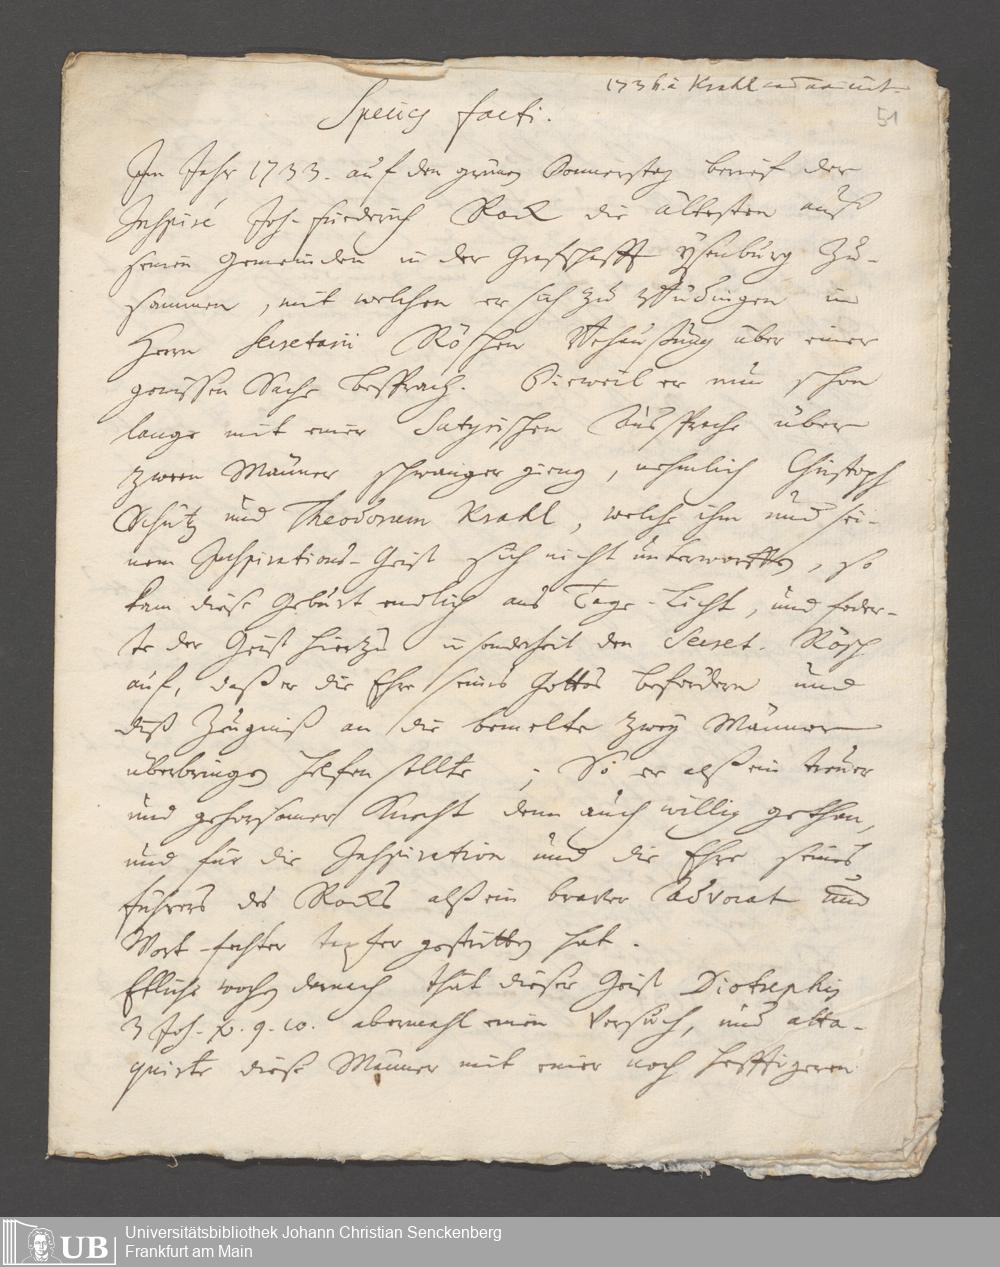 1736. à Krahl
51
Species facti.
Im Jahr 1733. auf den grünen Donnerstag berief der
Inspiré Joh. Friederich Rock die ältesten auß
seinen Gemeinden in der Grafschafft Ysenburg zu-
sammen, mit welchen er sich zu Büdingen in
Herrn Secretarii Röschen Behaußung über einer
gewissen Sache besprach. Dieweil er nun schon
lange mit einer Satyrischen Ausprache über
zween Männer schwanger gieng, nehmlich Christoph
Schütz und Theodorum Krahl, welche ihm und sei-
nem Inspirations-Geist sich nicht unterworffen, so
kam diese Geburt endlich ans Tage-Licht, und foder-
te der Geist hierzu insonderheit den Secret. Rösch
auf, daß er die Ehre seines Gottes befördern und
diß Zeugniß an die bemelte zwey Männer
überbringen helfen sollte; So er alß ein treuer
und gehorsamer Knecht denn auch willig gethan,
und für die Inspiration und die Ehre seines
führers des Rocks alß ein braver Advocat und
Wort-fechter tapfer gestritten hat.
Etliche wochen darnach thät dieser Geist Diotrephis
3 Joh. v. 9. 10. abermahl einen Versuch, und atta-
quirte diese Männer mit einer noch hefftigeren
UB
Universitätsbibliothek Johann Christian Senckenberg
Frankfurt am Main